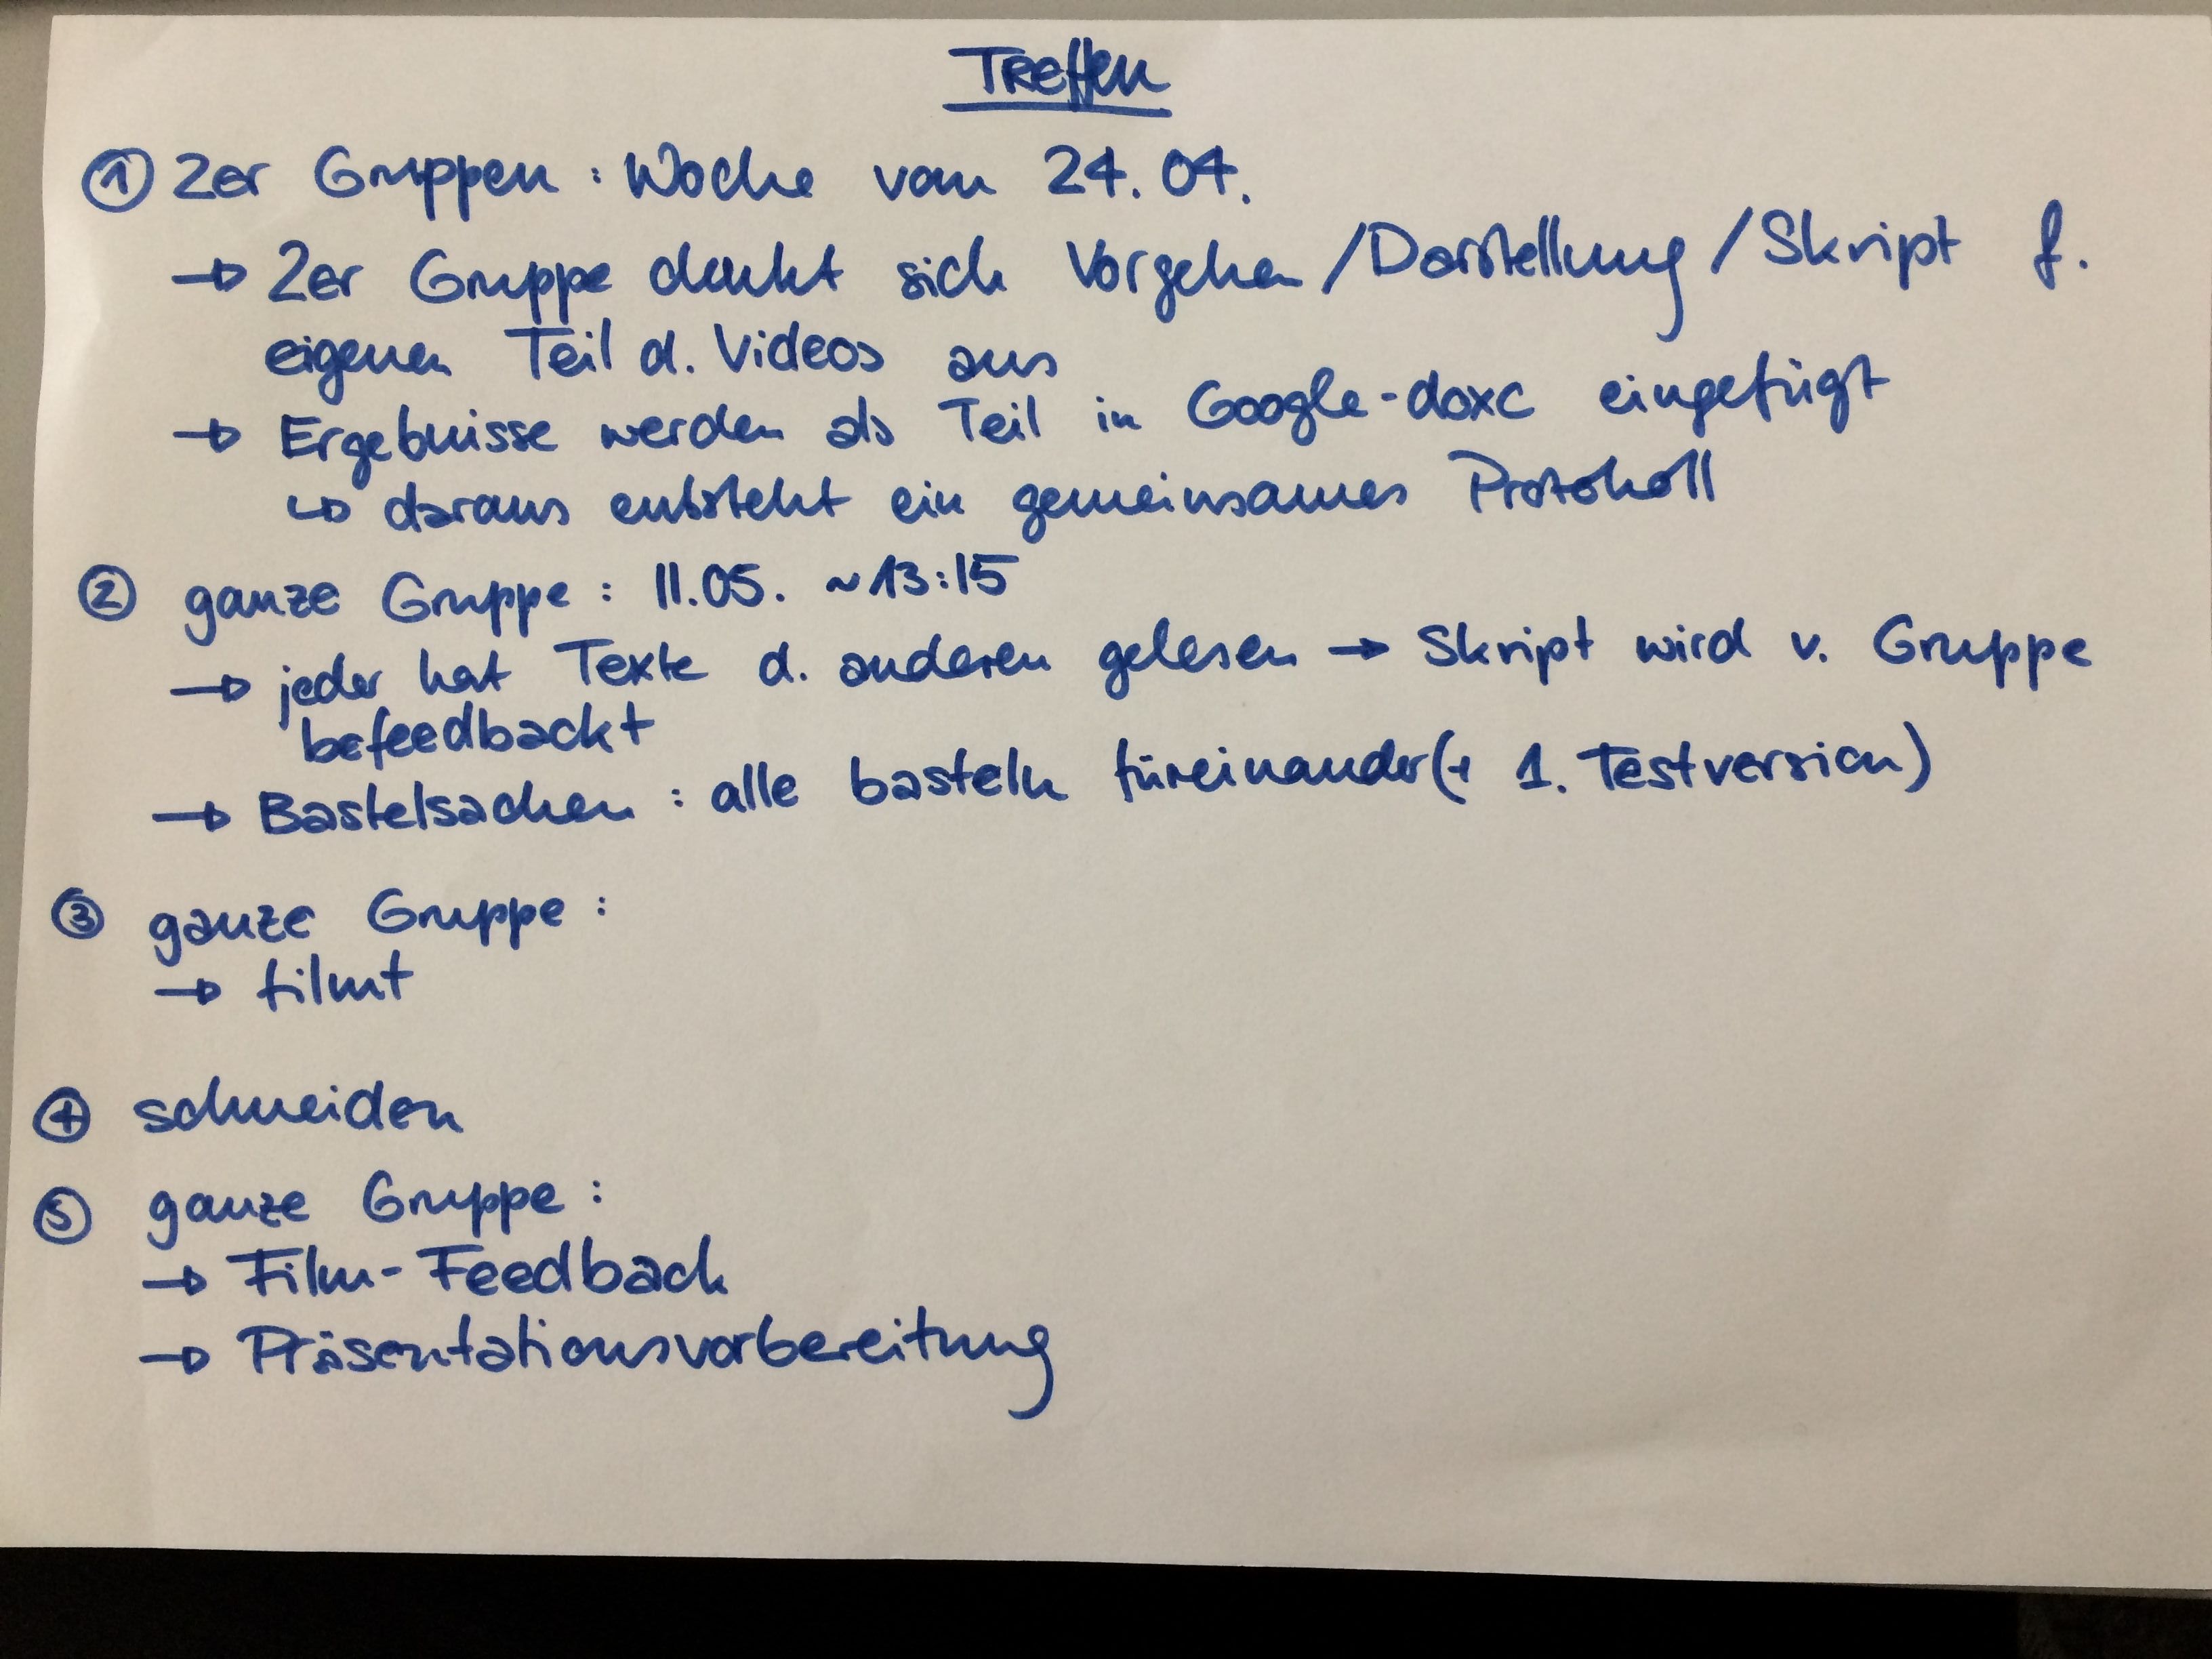 Treffen
① 2er Gruppen : Woche vom 24.04.
→ 2er Gruppe denkt sich Vorgehen / Darstellung / Skript f.
eigenen Teil d. Videos aus
→ Ergebnisse werden als Teil in Google-doxc eingefügt
↳ daraus entsteht ein gemeinsames Protokoll
② ganze Gruppe : 11.05. ~13:15
→ jeder hat Texte d. anderen gelesen → Skript wird v. Gruppe
befeedbackt
→ Bastelsachen : alle basteln füreinander (+ 1. Testversion)
③ ganze Gruppe :
→ filmt
④ schneiden
⑤ ganze Gruppe :
→ Film-Feedback
→ Präsentationsvorbereitung